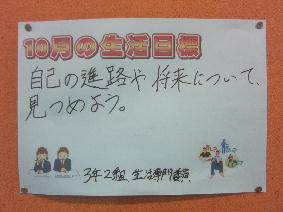 10月の生活目標
自己の進路や将来について、
見つめよう。
3年2組 生活専門委員